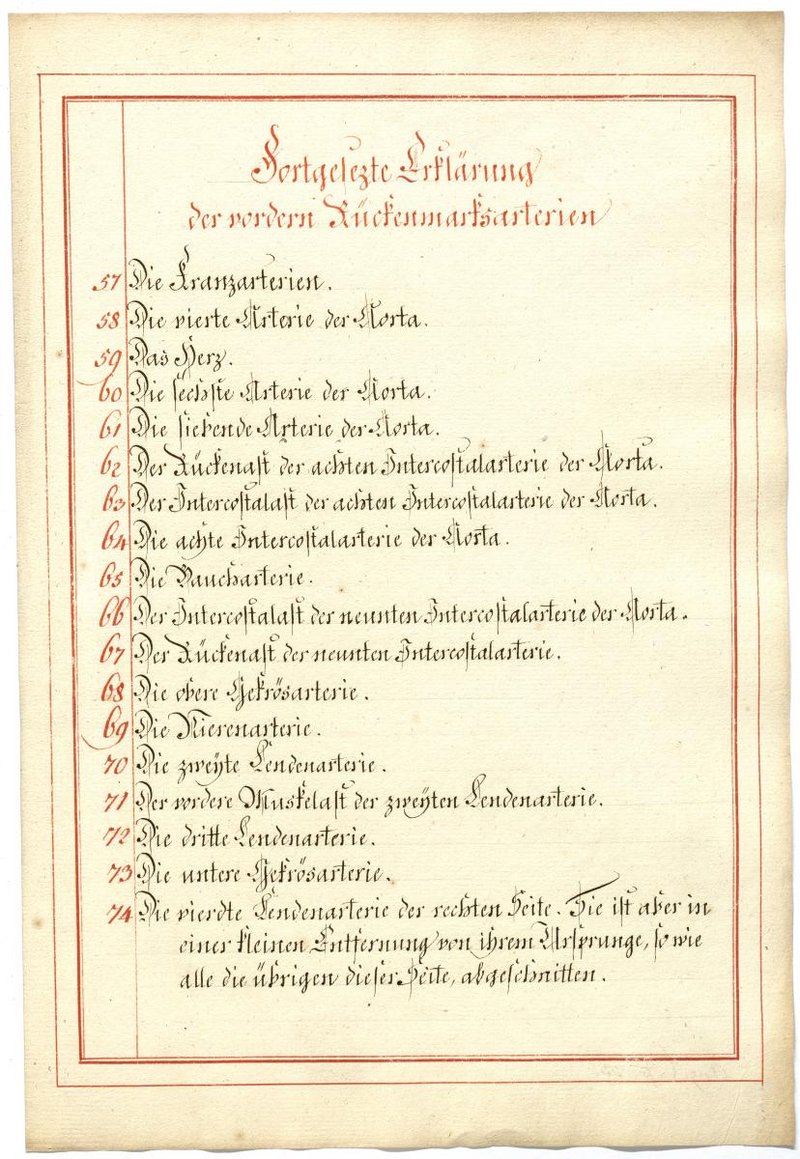 Fortgesezte Erklärung
der vordern Rückenmarksarterien
57 Die Kranzarterien.
58 Die vierte Arterie der Aorta.
59 Das Herz.
60 Die sechste Arterie der Aorta.
61 Die siebende Arterie der Aorta.
62 Der Rückenast der achten Intercostalarterie der Aorta.
63 Der Intercostalast der achten Intercostalarterie der Aorta.
64 Die achte Intercostalarterie der Aorta.
65 Die Baucharterie.
66 Der Intercostalast der neunten Intercostalarterie der Aorta.
67 Der Rückenast der neunten Intercostalarterie.
68 Die obere Gekrösarterie.
69 Die Nierenarterie.
70 Die zweÿte Lendenarterie.
71 Der vordere Muskelast der zweÿten Lendenarterie.
72 Die dritte Lendenarterie.
73 Die untere Gekrösarterie.
74 Die vierdte Lendenarterie der rechten Seite. Sie ist aber in
einer kleinen Entfernung von ihrem Ursprunge, so wie
alle die übrigen dieser Seite, abgeschnitten.